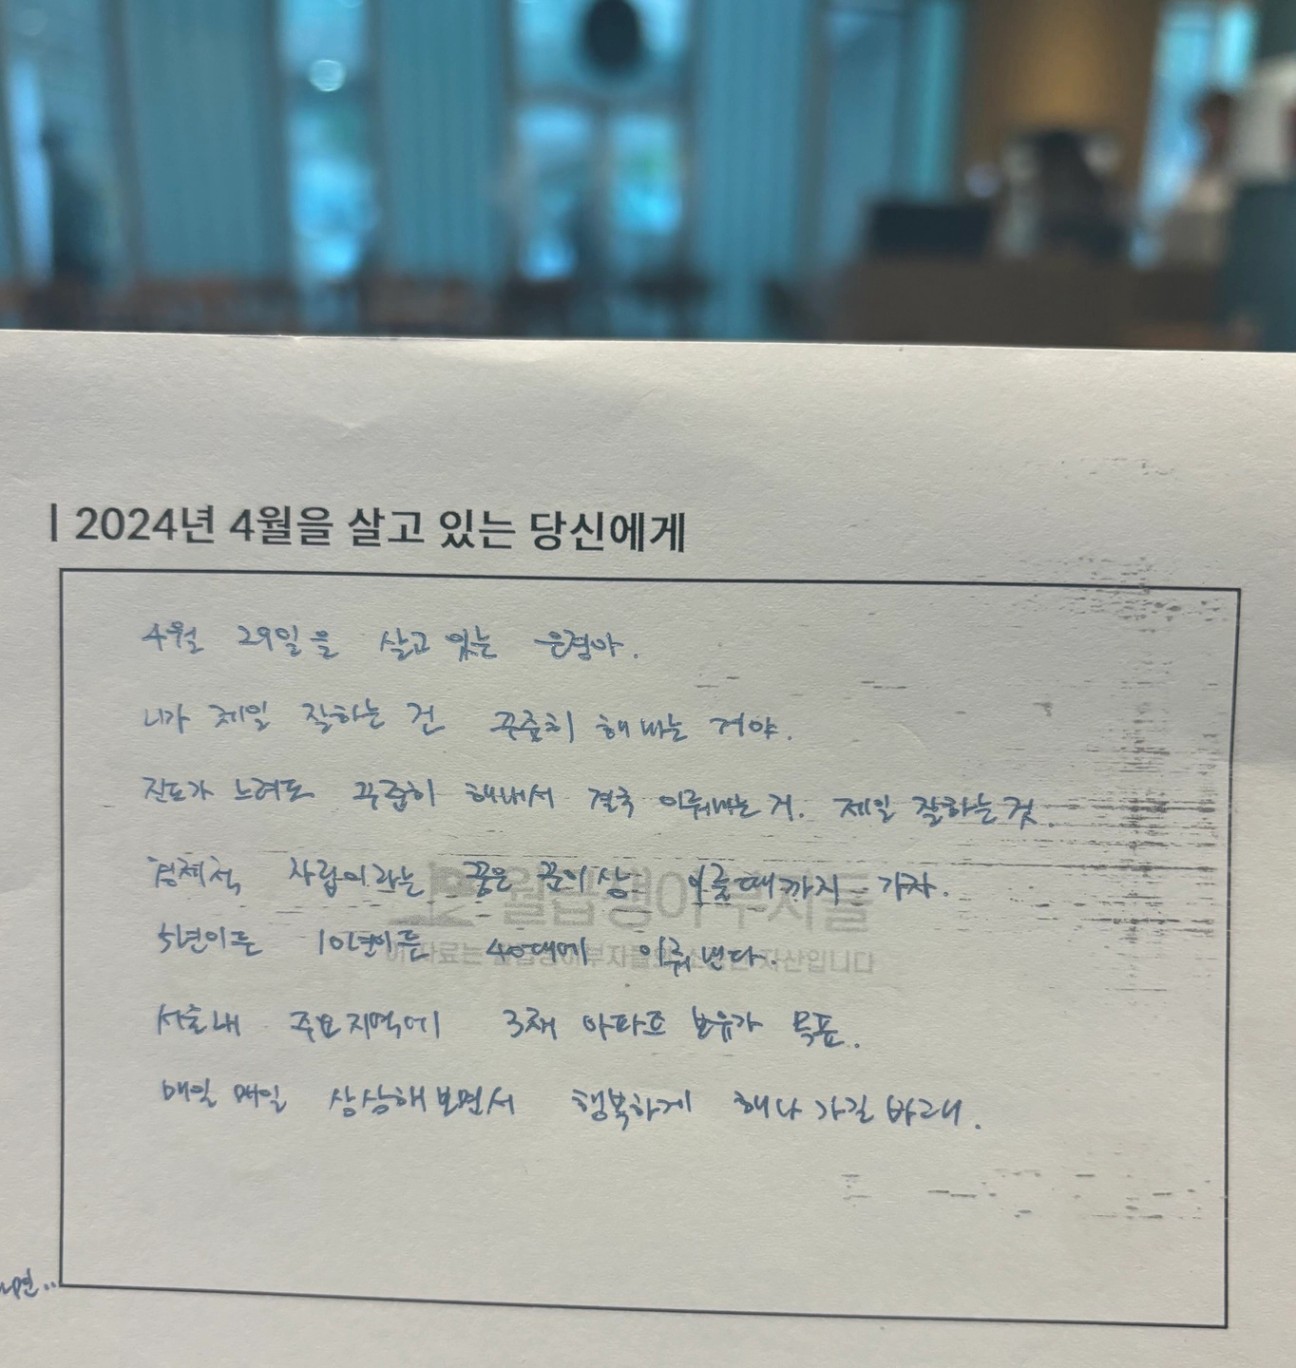 | 2024년 4월을 살고 있는 당신에게
4월 29일을 살고 있는 은경아.
니가 제일 잘하는 건 꾸준히 해 나는 거야.
진도가 느려도 꾸준히 해내서 결국 이뤄내는 거. 제일 잘하는 것.
경제적 자립이라는 꿈을 꾼이상 이룰때까지 가자.
월급쟁이부자들
5년이든 10년이든 40대에 이뤄 낸다.
이 자료는 월급쟁이부자들의 소중한 자산입니다
서울내 주요지역에 3채 아파트 보유가 목표.
매일 매일 상상해보면서 행복하게 해나 가길 바래.